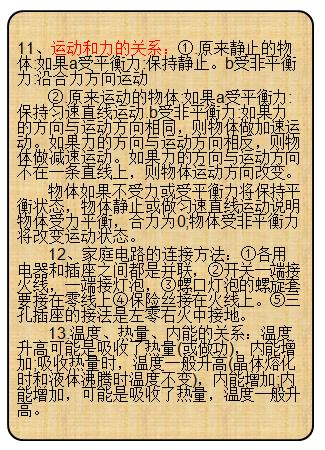 11、运动和力的关系：①.原来静止的物
体:如果a受平衡力:保持静止。b受非平衡
力:沿合力方向运动
②.原来运动的物体:如果a受平衡力:
保持匀速直线运动.b受非平衡力:如果力
的方向与运动方向相同，则物体做加速运
动。如果力的方向与运动方向相反，则物
体做减速运动。如果力的方向与运动方向
不在一条直线上，则物体运动方向改变。
物体如果不受力或受平衡力将保持平
衡状态，物体静止或做匀速直线运动说明
物体受力平衡，合力为0;物体受非平衡力
将改变运动状态。
12、家庭电路的连接方法：①各用
电器和插座之间都是并联，②开关一端接
火线，一端接灯泡，③螺口灯泡的螺旋套
要接在零线上④保险丝接在火线上。⑤三
孔插座的接法是左零右火中接地。
13.温度、热量、内能的关系：温度
升高可能是吸收了热量(或做功)，内能增
加;吸收热量时，温度一般升高(晶体熔化
时和液体沸腾时温度不变)，内能增加;内
能增加，可能是吸收了热量，温度一般升
高。